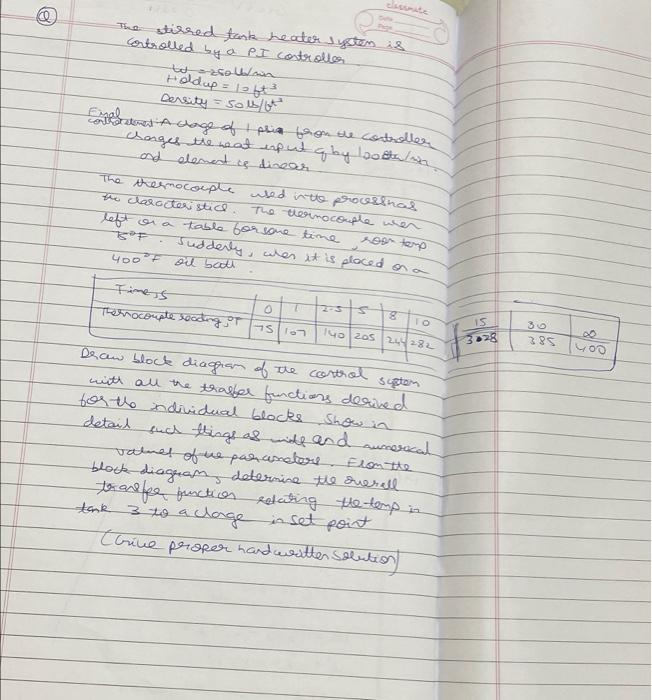 Q
classmate
Date
Page
The stirred tank heater system is
controlled by a PI controller
w = 250 lb/min
Holdup = 10 ft³
Density = 50 lb/ft³
Final control element: A chage of 1 psi from the controller
changes the heat input q by Btu/min
and element is linear.
The thermocouple used in the process has
the characteristics. The thermocouple when
left on a table for some time, room temp
°F. Suddenly, when it is placed on a
400°F oil bath
Time, s 0 1 2.5 5 8 10 15 30 ∞
Thermocouple reading, °F 75 107 140 205 244 282 3028 385 400
Draw block diagram of the control system
with all the trasfer functions derived
for the individual blocks. Show in
detail such things as units and numerical
values of the parameters. From the
block diagram, determine the overall
transfer function relating the temp in
tank 3 to a chage in set point
(Give proper handwritten solution)